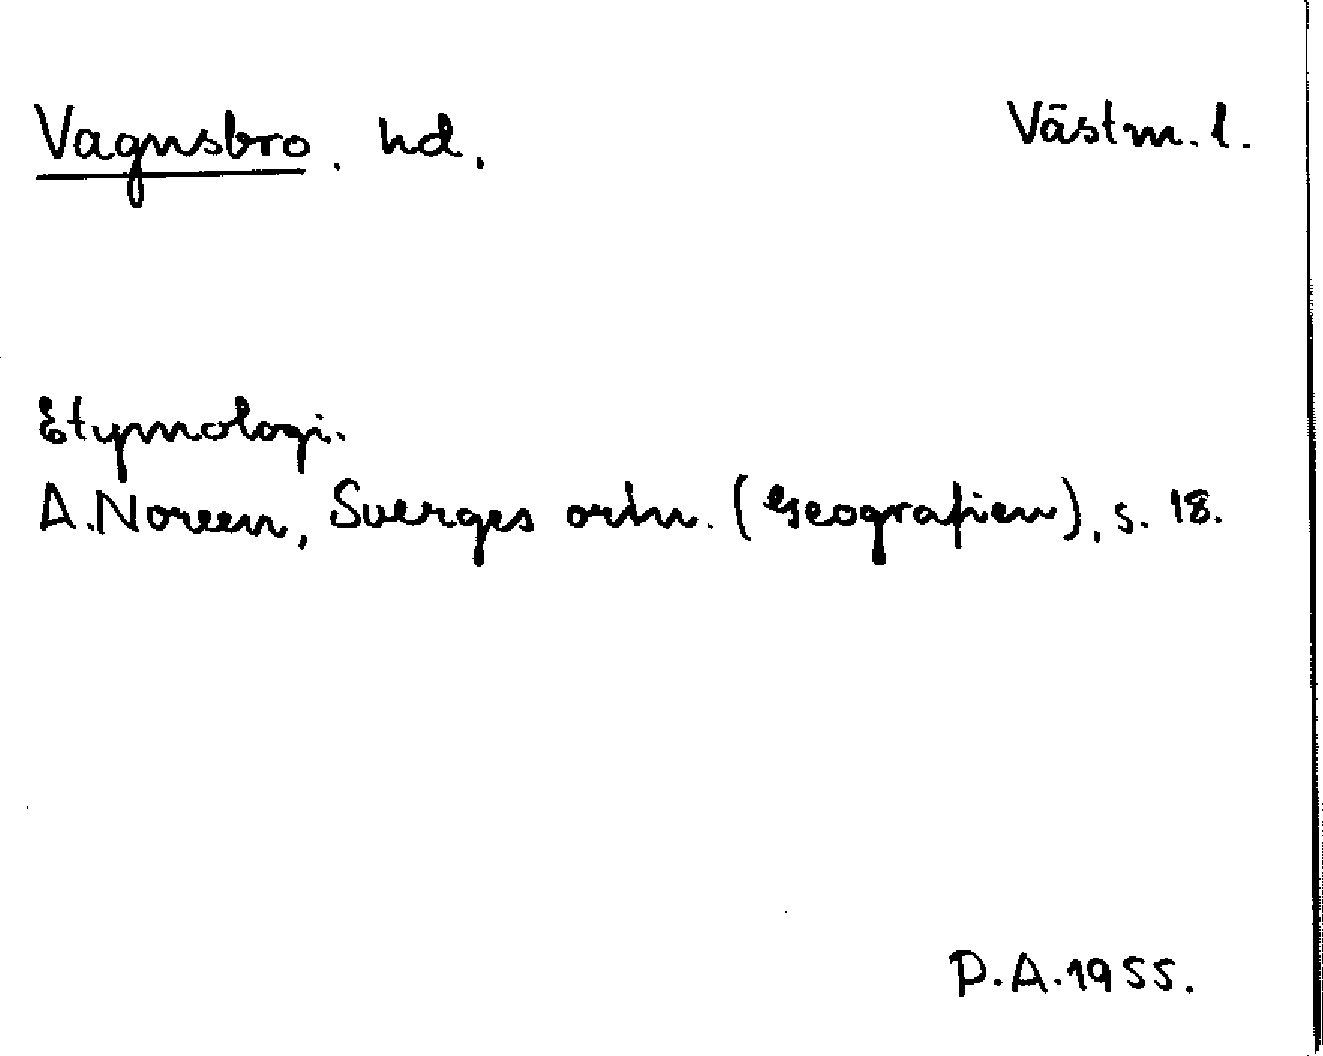 Vagnsbro. hd. Västm. l.
Etymologi.
A. Noreen, Sverges ortn. (Geografien), s. 18.
P.A. 1955.